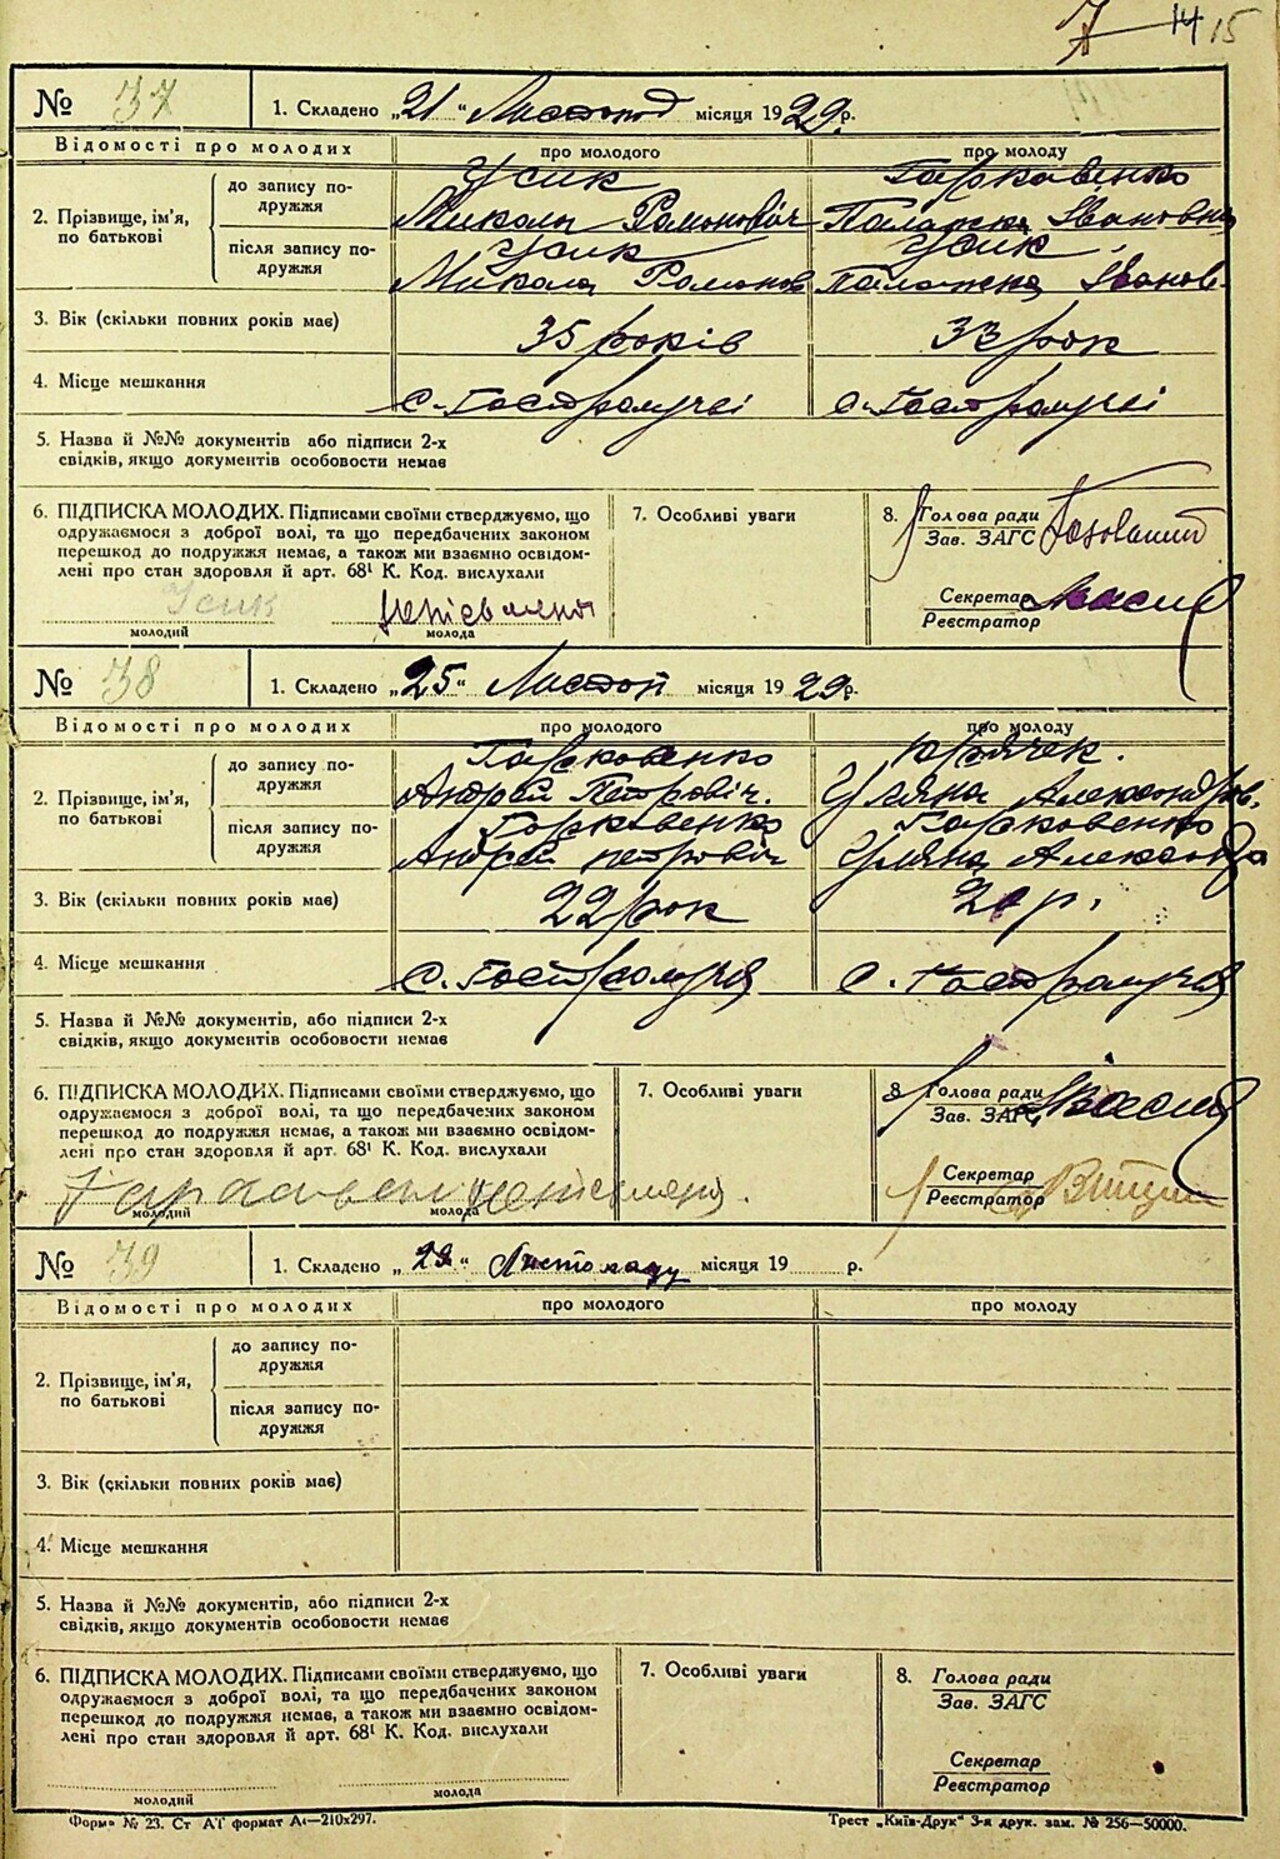 7 14 15
№ 37 1. Складено „21“ Листопад місяця 1929 р.
Відомості про молодих про молодого про молоду
2. Прізвище, ім'я, по батькові
до запису подружжя
Усик
Микола Романович
Гарковенко
Палажка Івановна
після запису подружжя
Усик
Микола Романов
Усик
Палажка Іванов.
3. Вік (скільки повних років має) 35 років 33 рок
4. Місце мешкання с. Гостролучкі с. Гостролучкі
5. Назва й №№ документів або підписи 2-х
свідків, якщо документів особовости немає
6. ПІДПИСКА МОЛОДИХ. Підписами своїми стверджуємо, що
одружаємося з доброї волі, та що передбачених законом
перешкод до подружжя немає, а також ми взаємно освідом-
лені про стан здоровля й арт. 68¹ К. Код. вислухали
Усик
молодий молода
7. Особливі уваги
8. Голова ради
Зав. ЗАГС
Секретар
Реєстратор
№ 38 1. Складено „25“ Листоп місяця 1929 р.
Відомості про молодих про молодого про молоду
2. Прізвище, ім'я, по батькові
до запису подружжя
Гарковенко
Андрей Петровіч.
Уляна Александров.
після запису подружжя
Гарковенко
Андрей петровіч
Гарковенко
Уляна Александро
3. Вік (скільки повних років має) 22 рок 20 р.
4. Місце мешкання с. Гостролуччя с. Гостролуччя
5. Назва й №№ документів, або підписи 2-х
свідків, якщо документів особовости немає
6. ПІДПИСКА МОЛОДИХ. Підписами своїми стверджуємо, що
одружаємося з доброї волі, та що передбачених законом
перешкод до подружжя немає, а також ми взаємно освідом-
лені про стан здоровля й арт. 68¹ К. Код. вислухали
молодий молода
7. Особливі уваги
8. Голова ради
Зав. ЗАГС
Секретар
Реєстратор
№ 39 1. Складено „29“ Листопаду місяця 19 р.
Відомості про молодих про молодого про молоду
2. Прізвище, ім'я,
по батькові
до запису по-
дружжя
після запису по-
дружжя
3. Вік (скільки повних років має)
4. Місце мешкання
5. Назва й №№ документів, або підписи 2-х
свідків, якщо документів особовости немає
6. ПІДПИСКА МОЛОДИХ. Підписами своїми стверджуємо, що
одружаємося з доброї волі, та що передбачених законом
перешкод до подружжя немає, а також ми взаємно освідом-
лені про стан здоровля й арт. 68¹ К. Код. вислухали
молодий молода
7. Особливі уваги
8. Голова ради
Зав. ЗАГС
Секретар
Реєстратор
Форма № 23. Ст АТ формат А4—210х297. Трест „Київ-Друк“ 3-я друк. зам. № 256—50000.